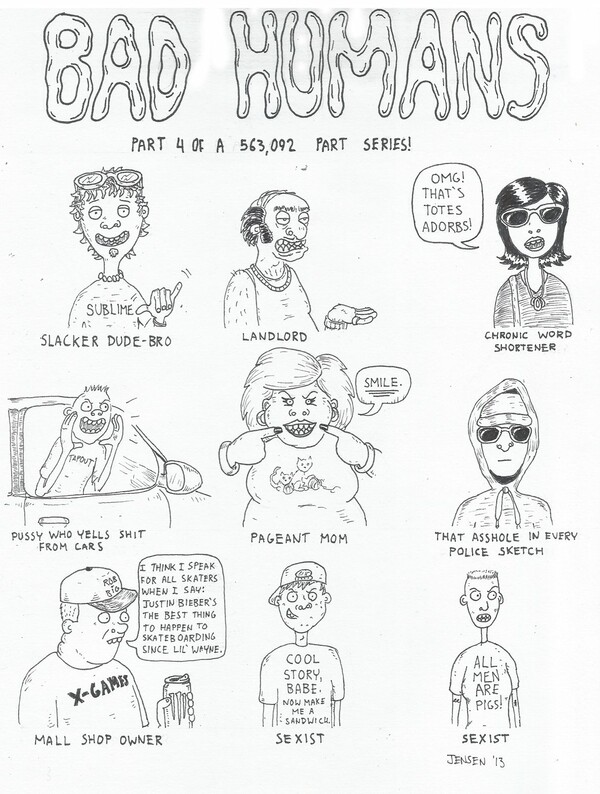 BAD HUMANS
PART 4 OF A 563,092 PART SERIES!
SUBLIME
SLACKER DUDE-BRO
LANDLORD
OMG!
THAT'S
TOTES
ADORBS!
CHRONIC WORD
SHORTENER
TAPOUT
PUSSY WHO YELLS SHIT
FROM CARS
SMILE.
PAGEANT MOM
THAT ASSHOLE IN EVERY
POLICE SKETCH
ROB
BIG
X-GAMES
I THINK I SPEAK
FOR ALL SKATERS
WHEN I SAY:
JUSTIN BIEBER'S
THE BEST THING
TO HAPPEN TO
SKATEBOARDING
SINCE LIL' WAYNE.
MALL SHOP OWNER
COOL
STORY,
BABE.
NOW MAKE
ME A
SANDWICH.
SEXIST
ALL
MEN
ARE
PIGS!
SEXIST
JENSEN '13